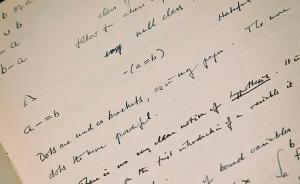 b or a
∪ b
- a
b - a
class of
follow & above
null class
-(a = b)
Λ
a - = b
Dots are used as brackets, as in my paper. The more
dots the more powerful.
There is no very clear notion of hypothesis. It is
on the first introduction of a variable it
of bound variables